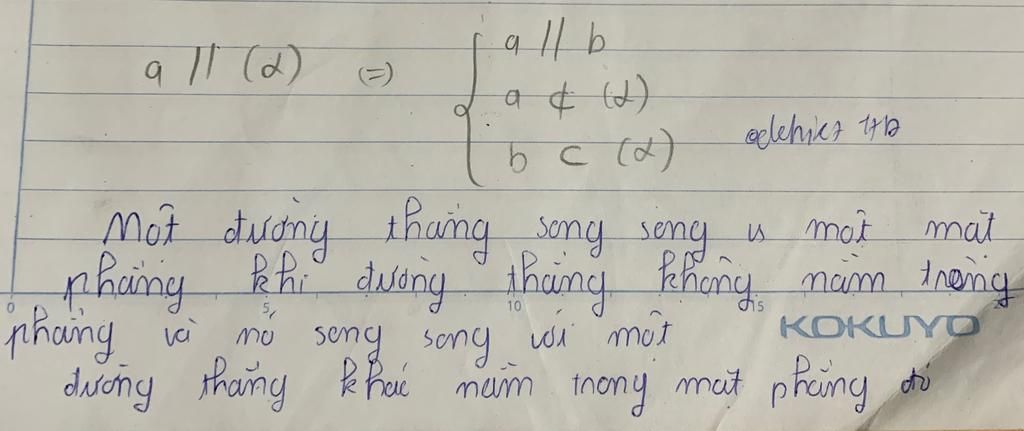 a // (α) (=) { a // b
a ⊄ (α)
b ⊂ (α)
Một đường thẳng song song vs một mặt
phẳng khi đường thẳng không nằm trong
0 5 10 15
phẳng và nó song song với một KOKUYO
đường thẳng khác nằm trong mặt phẳng đó